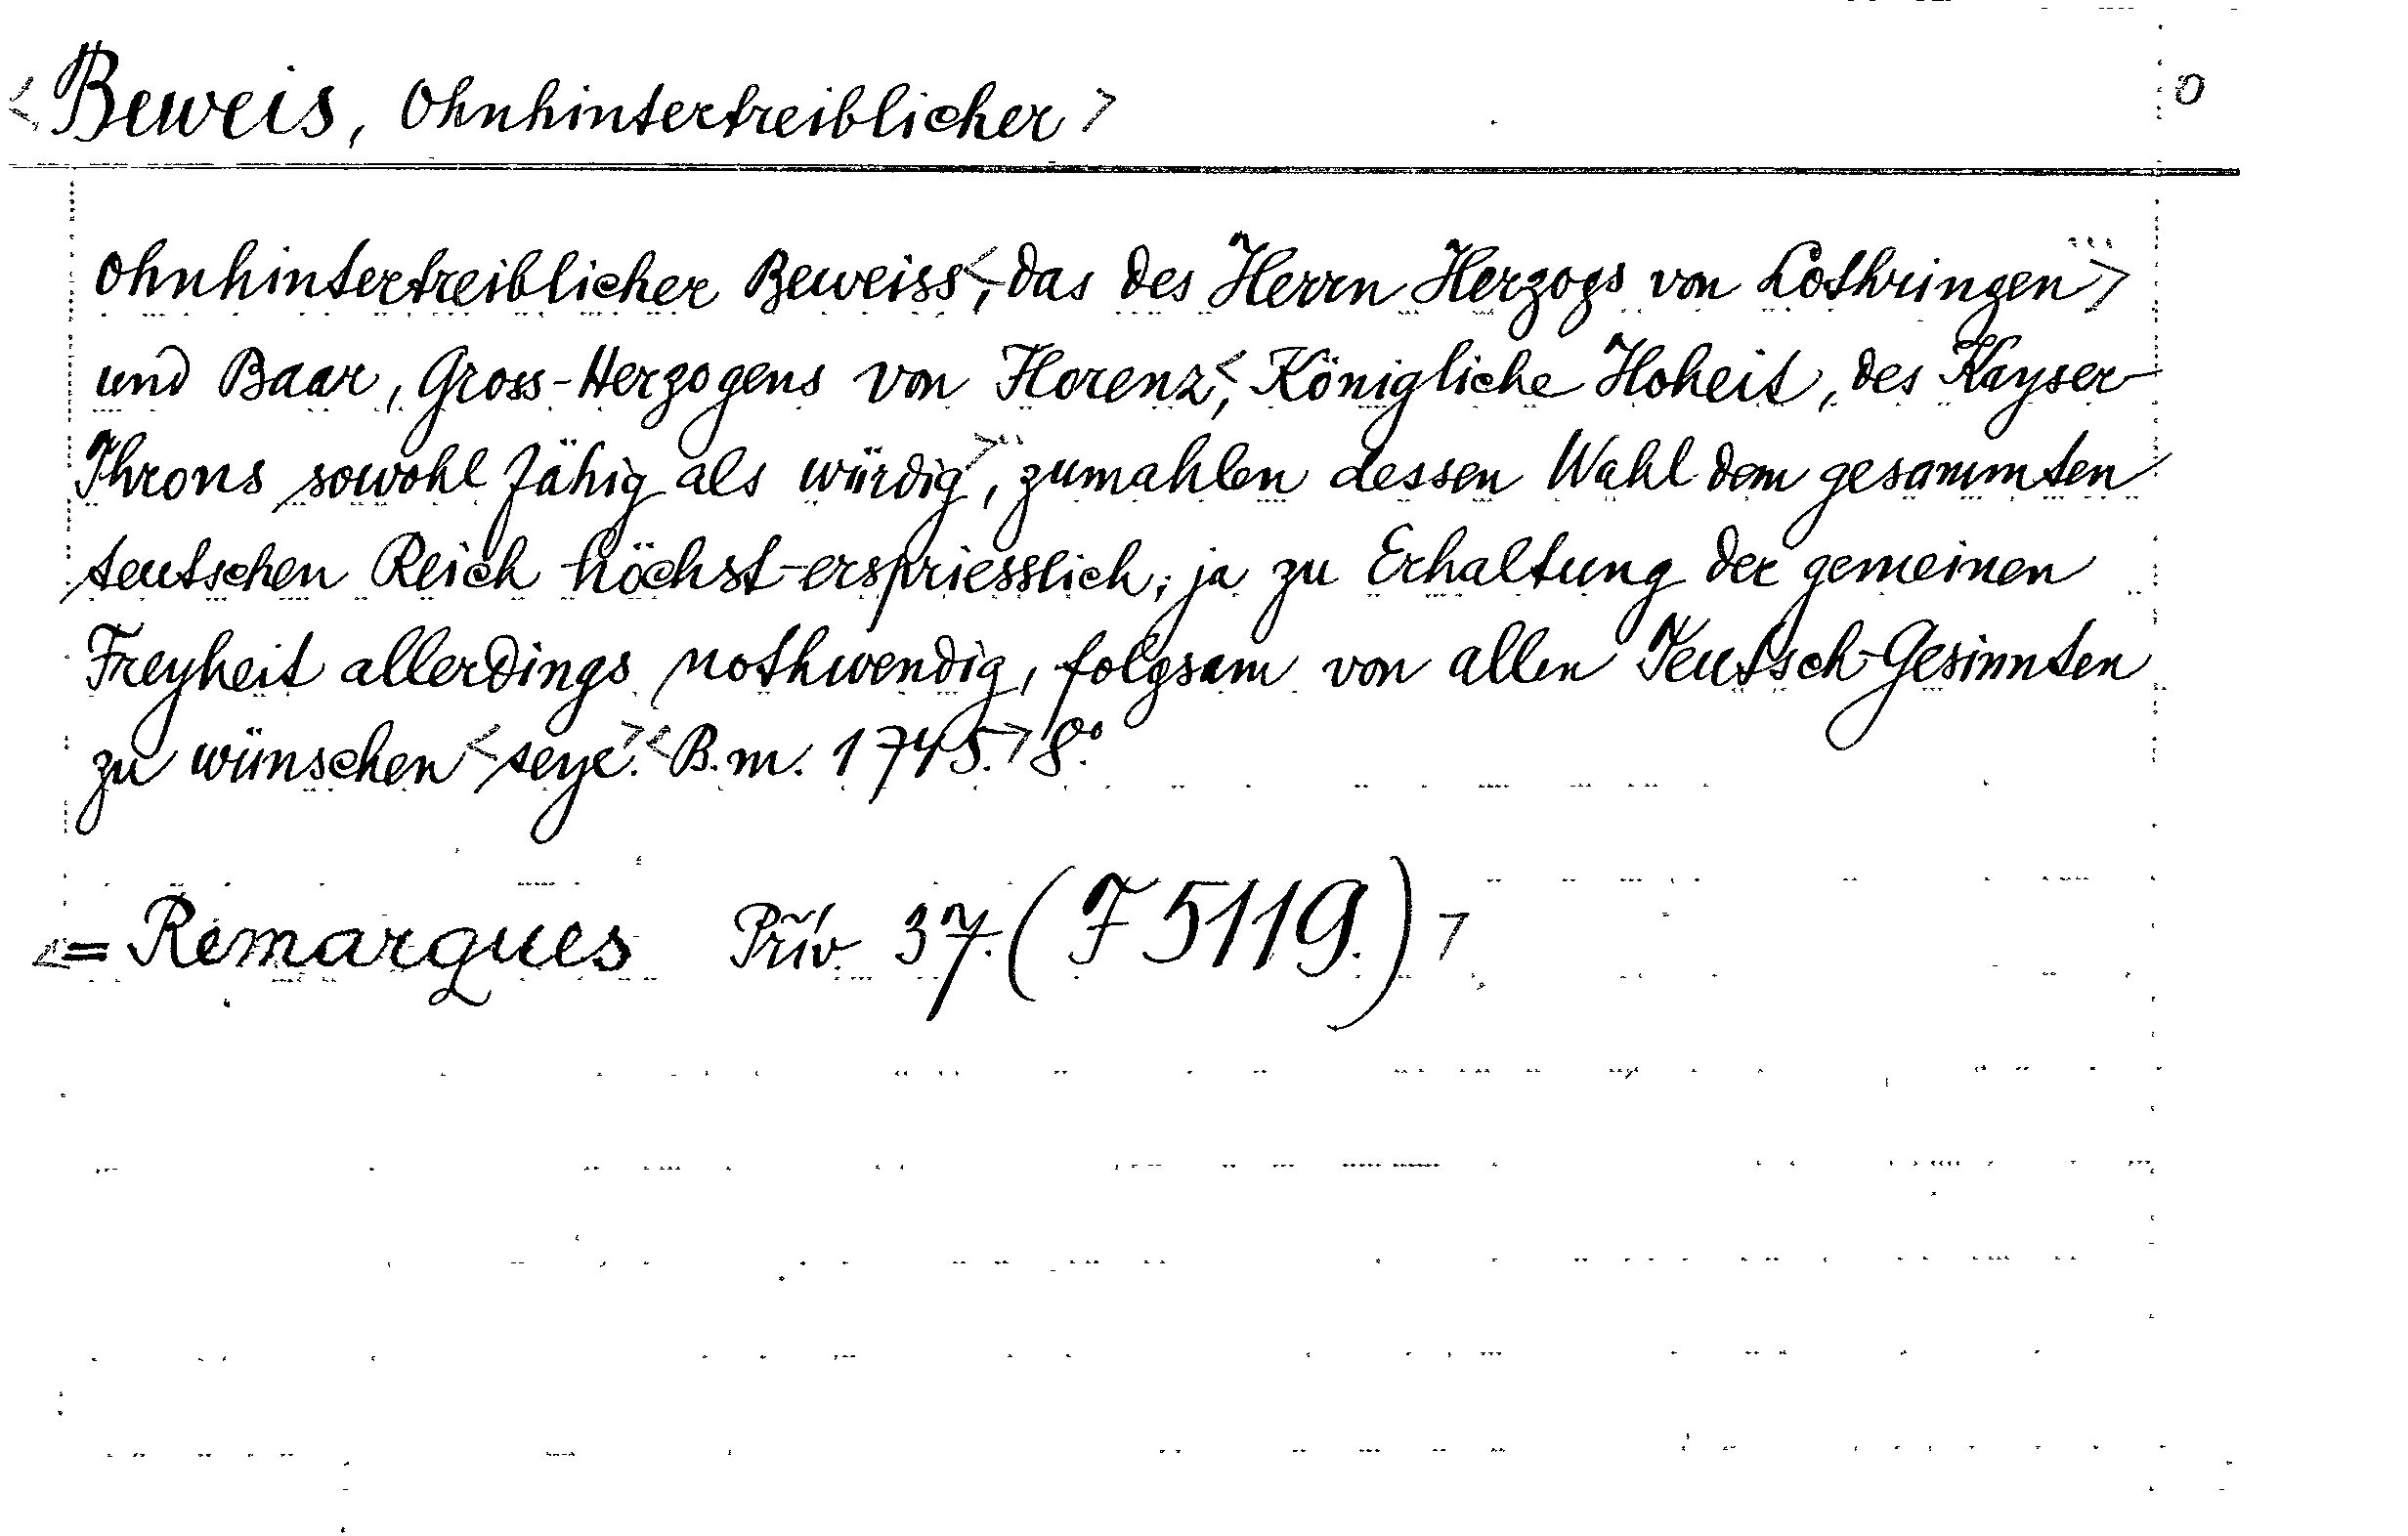 <Beweis, Ohnhintertreiblicher> O
Ohnhintertreiblicher Beweiss<, das des Herrn Herzogs von Lothringen>...
und Baar, Gross-Herzogens von Florenz<, Königliche Hoheit, des Kayser-
Throns sowohl fähig als würdig>..., zumahlen dessen Wahl dem gesammten
teutschen Reich höchst-erspriesslich, ja zu Erhaltung der gemeinen
Freyheit allerdings nothwendig, folgsam von allen Teutsch-Gesinnten
zu wünschen <seye.> <B. m. 1745.> 8°.
<= Remarques Priv. 37. (F 5119.)>